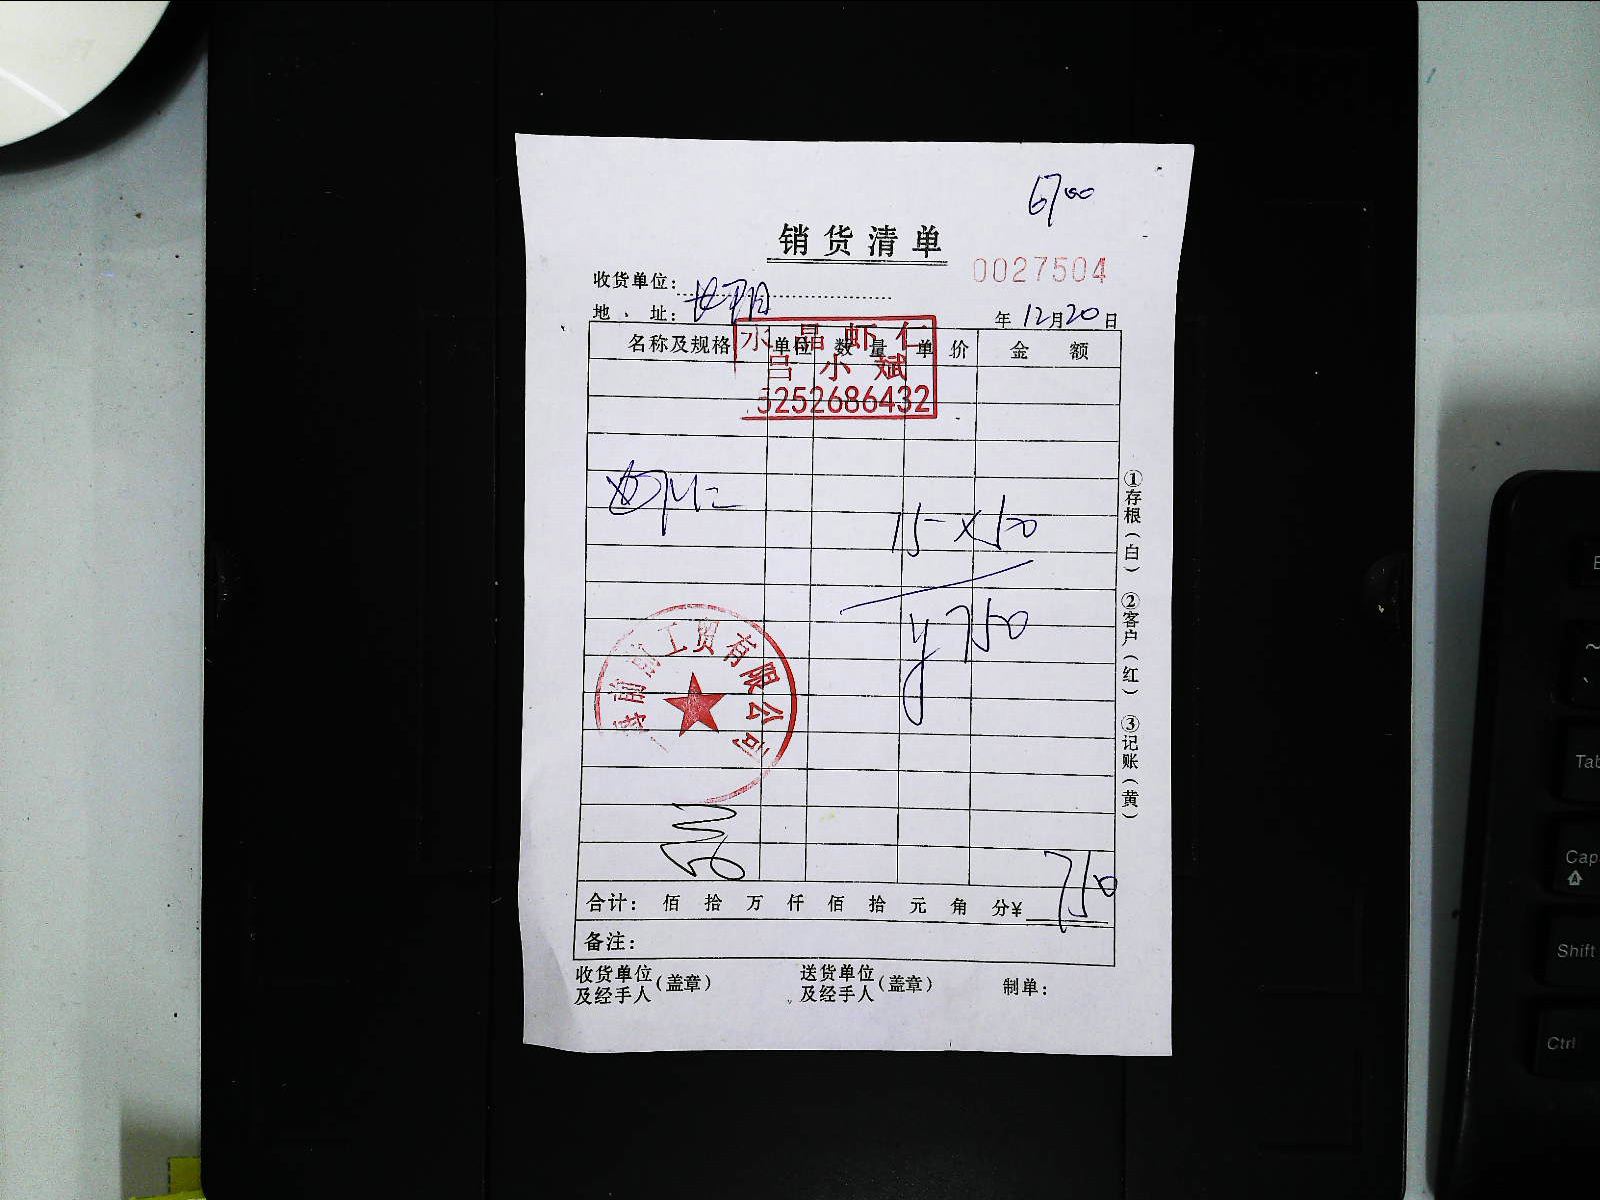 6700
销货清单
0027504
收货单位：
地 址：
年 12月20日
水晶虾仁
吕小斌
5252686432
名称及规格 单位 数量 单价 金额
15 × 50
¥750
前前工贸有限公司
750
合计： 佰 拾 万 仟 佰 拾 元 角 分¥
备注：
收货单位及经手人（盖章）
送货单位及经手人（盖章）
制单：
①存根（白） ②客户（红） ③记账（黄）
Tab
Cap
Shift
Ctrl